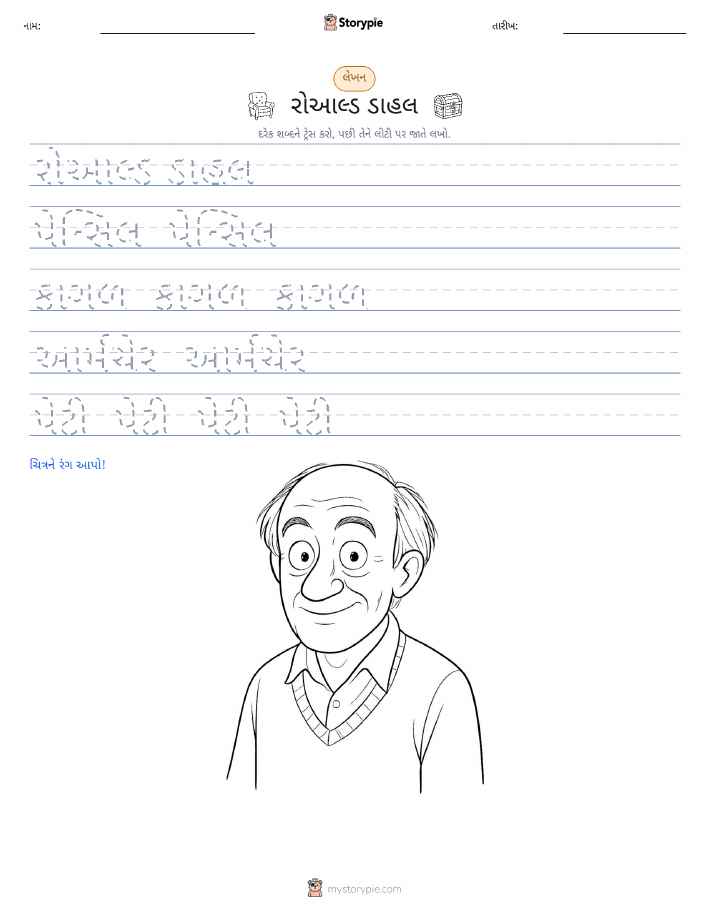 નામ:
Storypie
તારીખ:
લેખન
રોઆલ્ડ ડાહલ
દરેક શબ્દને ટ્રેસ કરો, પછી તેને લીટી પર જાતે લખો.
રોઆલ્ડ ડાહલ
પેન્સિલ પેન્સિલ
કાગળ કાગળ કાગળ
આર્મચેર આર્મચેર
પેટી પેટી પેટી પેટી
ચિત્રને રંગ આપો!
mystorypie.com